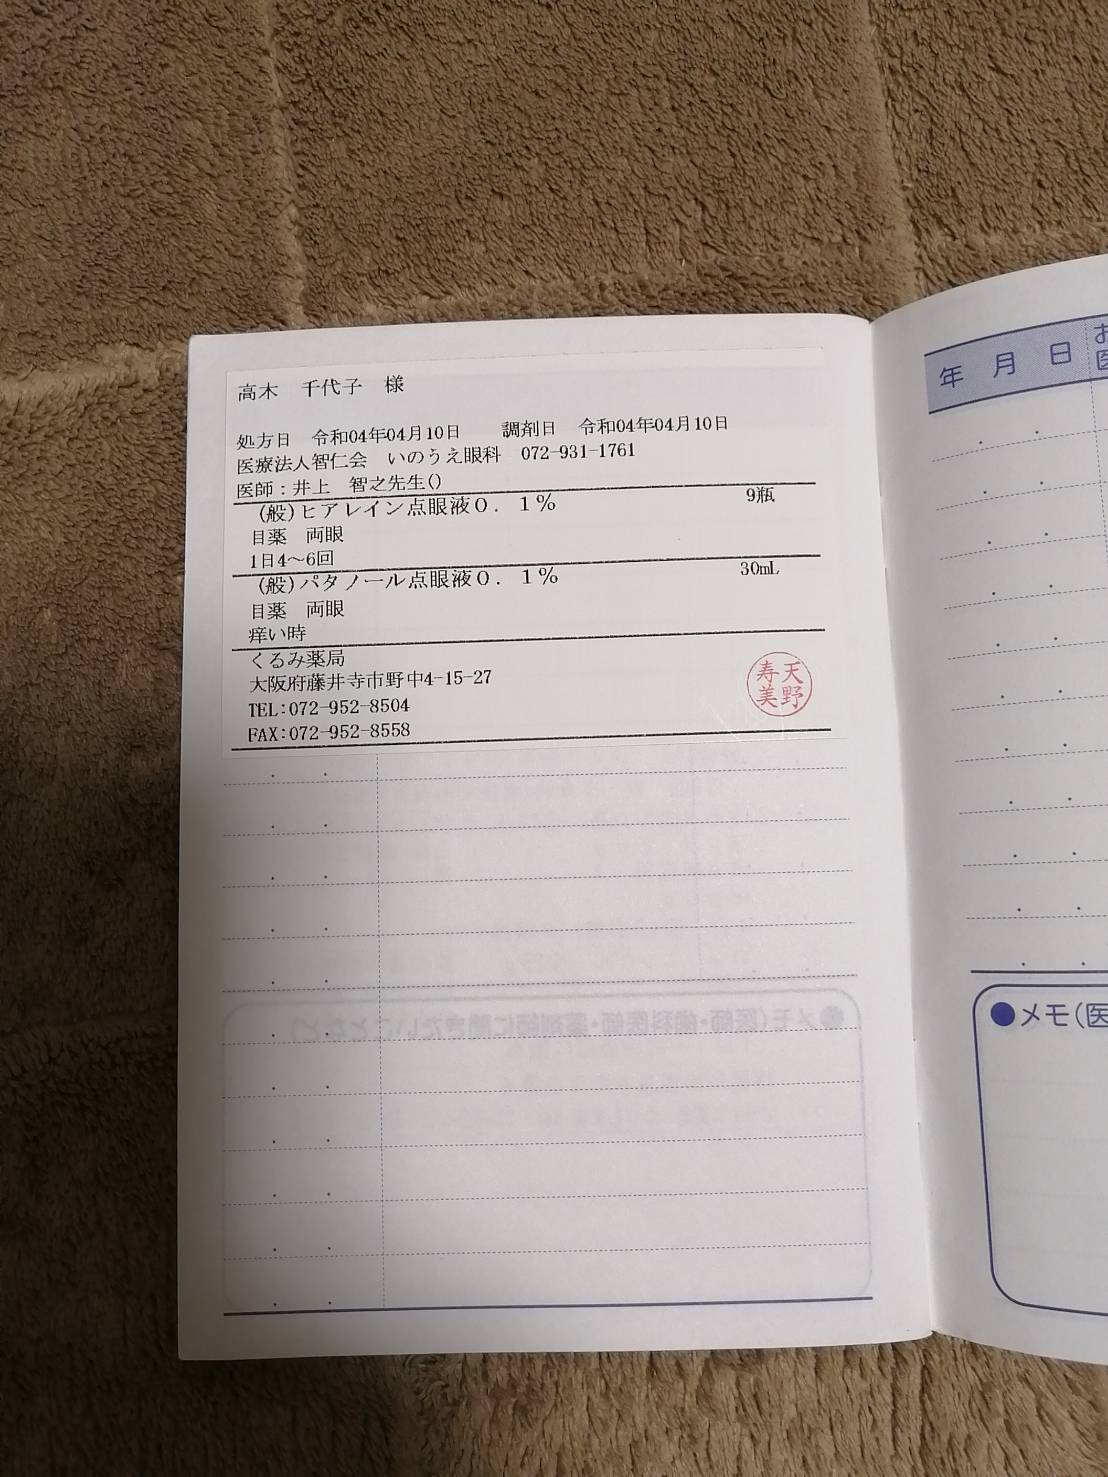 高木　千代子　様
処方日　令和04年04月10日　　調剤日　令和04年04月10日
医療法人智仁会　いのうえ眼科　072-931-1761
医師：井上　智之先生()
(般)ヒアレイン点眼液０．１％　　9瓶
目薬　両眼
1日4～6回
(般)パタノール点眼液０．１％　　30mL
目薬　両眼
痒い時
くるみ薬局
大阪府藤井寺市野中4-15-27
TEL:072-952-8504
FAX:072-952-8558
天野
寿美
年　月　日
お
●メモ(医